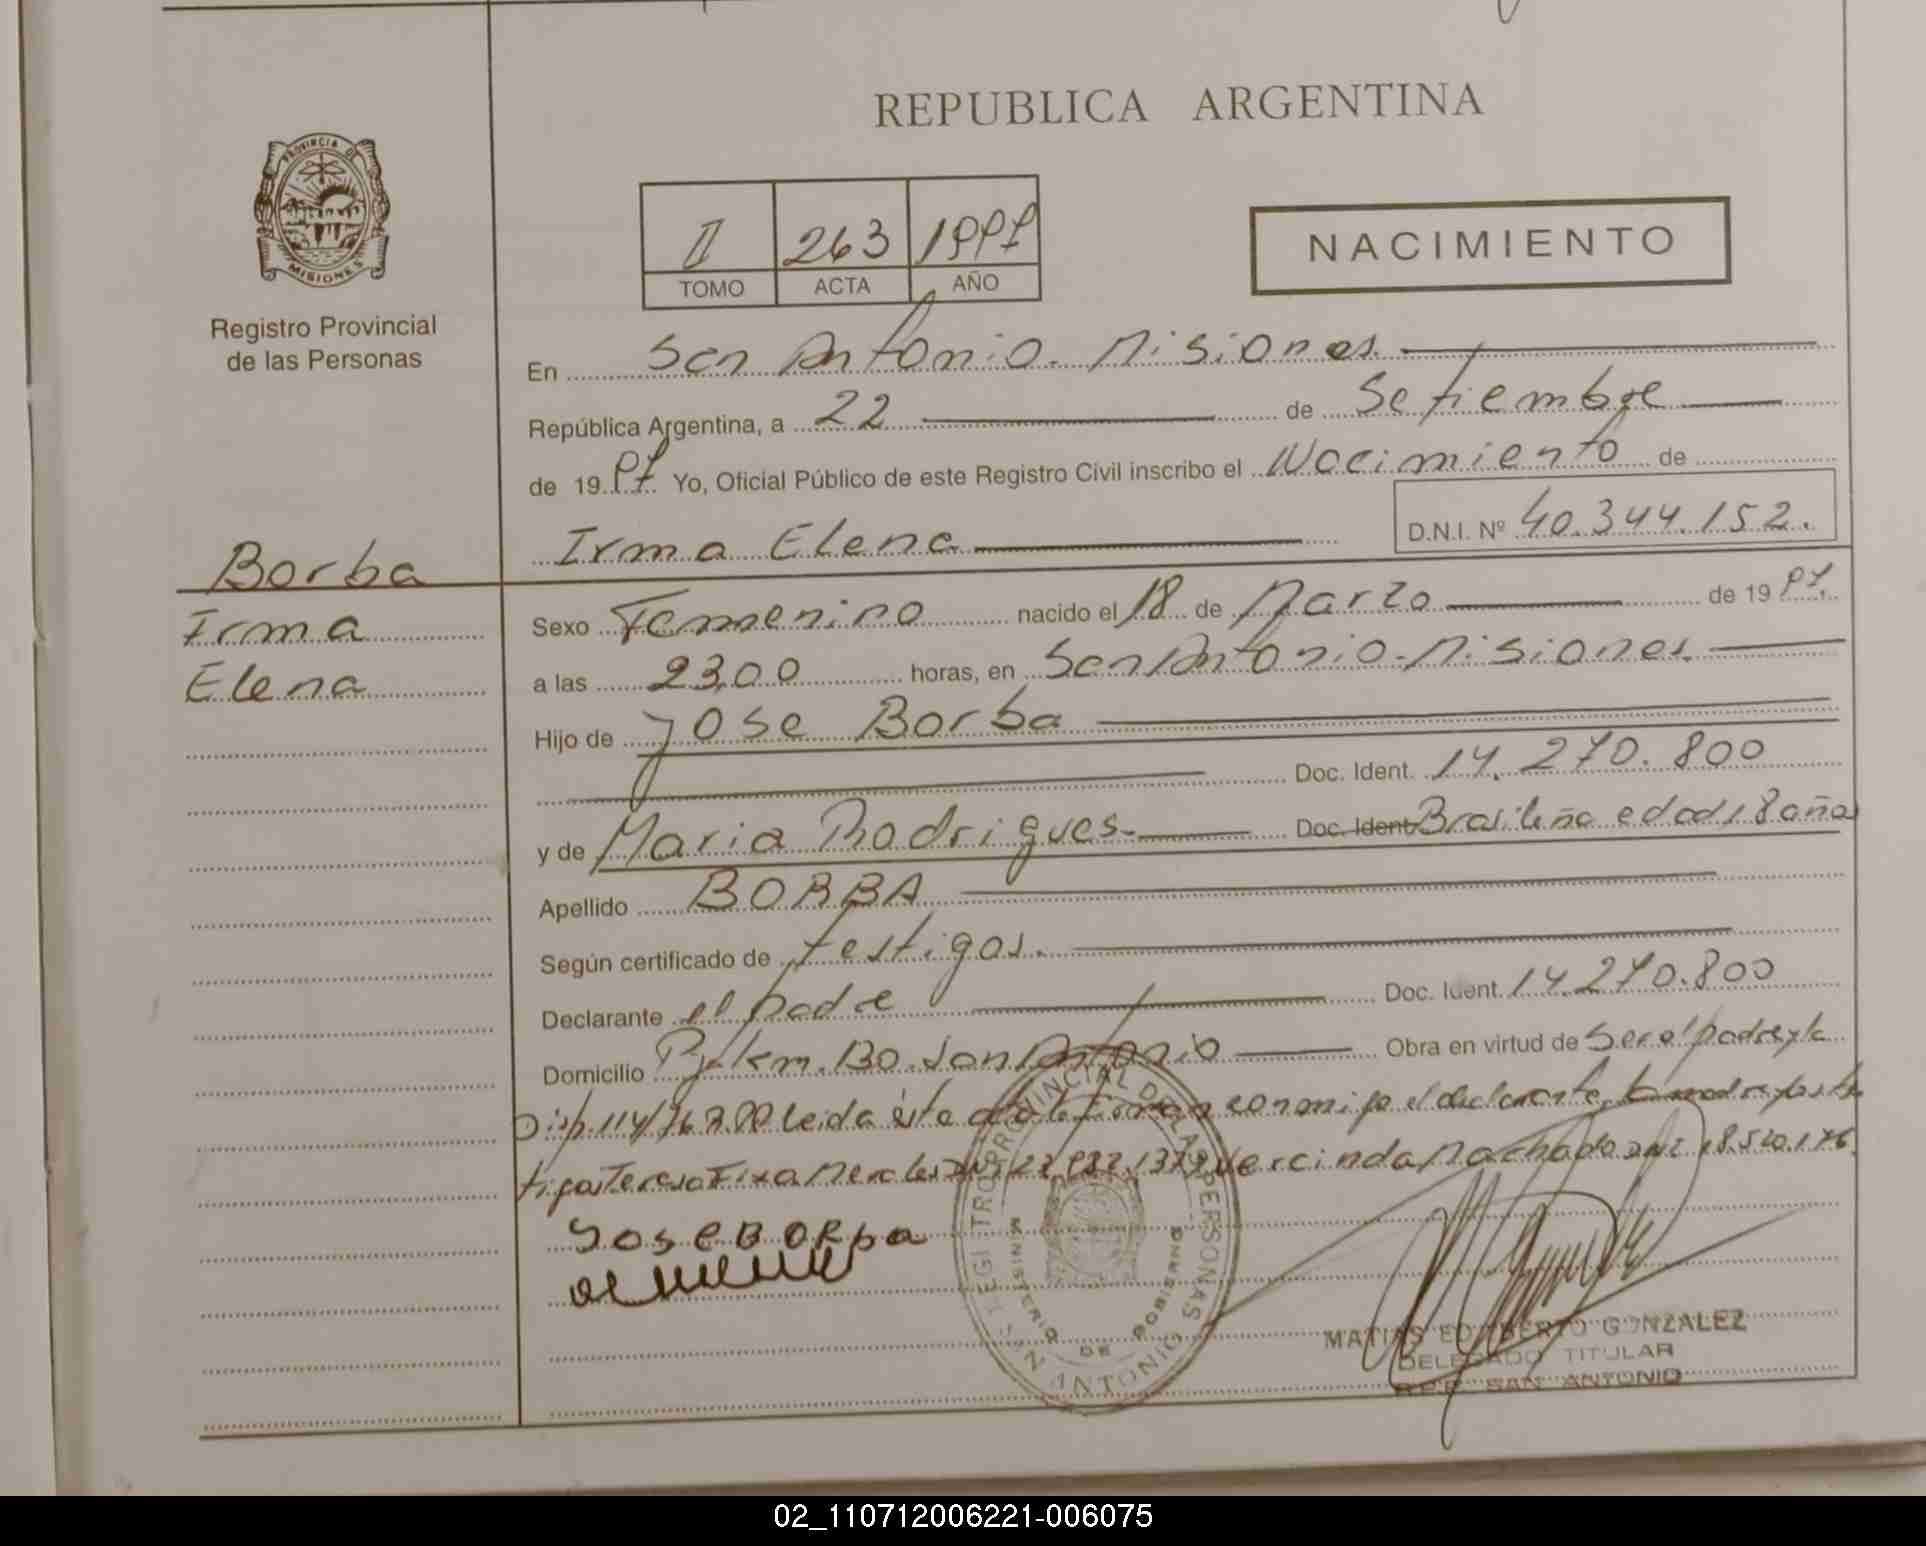 REPUBLICA ARGENTINA
PROVINCIA DE
MISIONES
Registro Provincial
de las Personas
II 263 1997
TOMO ACTA AÑO
NACIMIENTO
En San Antonio. Misiones.
República Argentina, a 22 de Setiembre
de 19 97 Yo, Oficial Público de este Registro Civil inscribo el Nacimiento de
Irma Elena D.N.I. Nº 40.344.152.
Borba
Irma
Elena
Sexo Femenino nacido el 18 de Marzo de 19 97.
a las 23,00 horas, en San Antonio. Misiones.
Hijo de Jose Borba
Doc. Ident. 14.270.800
y de Maria Rodrigues.- Doc. Ident Brasileña edad 18 años
Apellido BORBA
Según certificado de testigos.
Declarante el padre Doc. Ident. 14.270.800
Domicilio Km. Bo. San Antonio Obra en virtud de Ser el padre y la
Disp. 114/76 leida este acta la firman conmigo el declarante, la madre y los tes
tigos Teresa Machado 18.520.176.
JOSE BORBA
REGISTRO PROVINCIAL DE LAS PERSONAS
MINISTERIO DE GOBIERNO
SAN ANTONIO
MATIAS EDILBERTO GONZALEZ
DELEGADO TITULAR
R.P.P. SAN ANTONIO
02_110712006221-006075